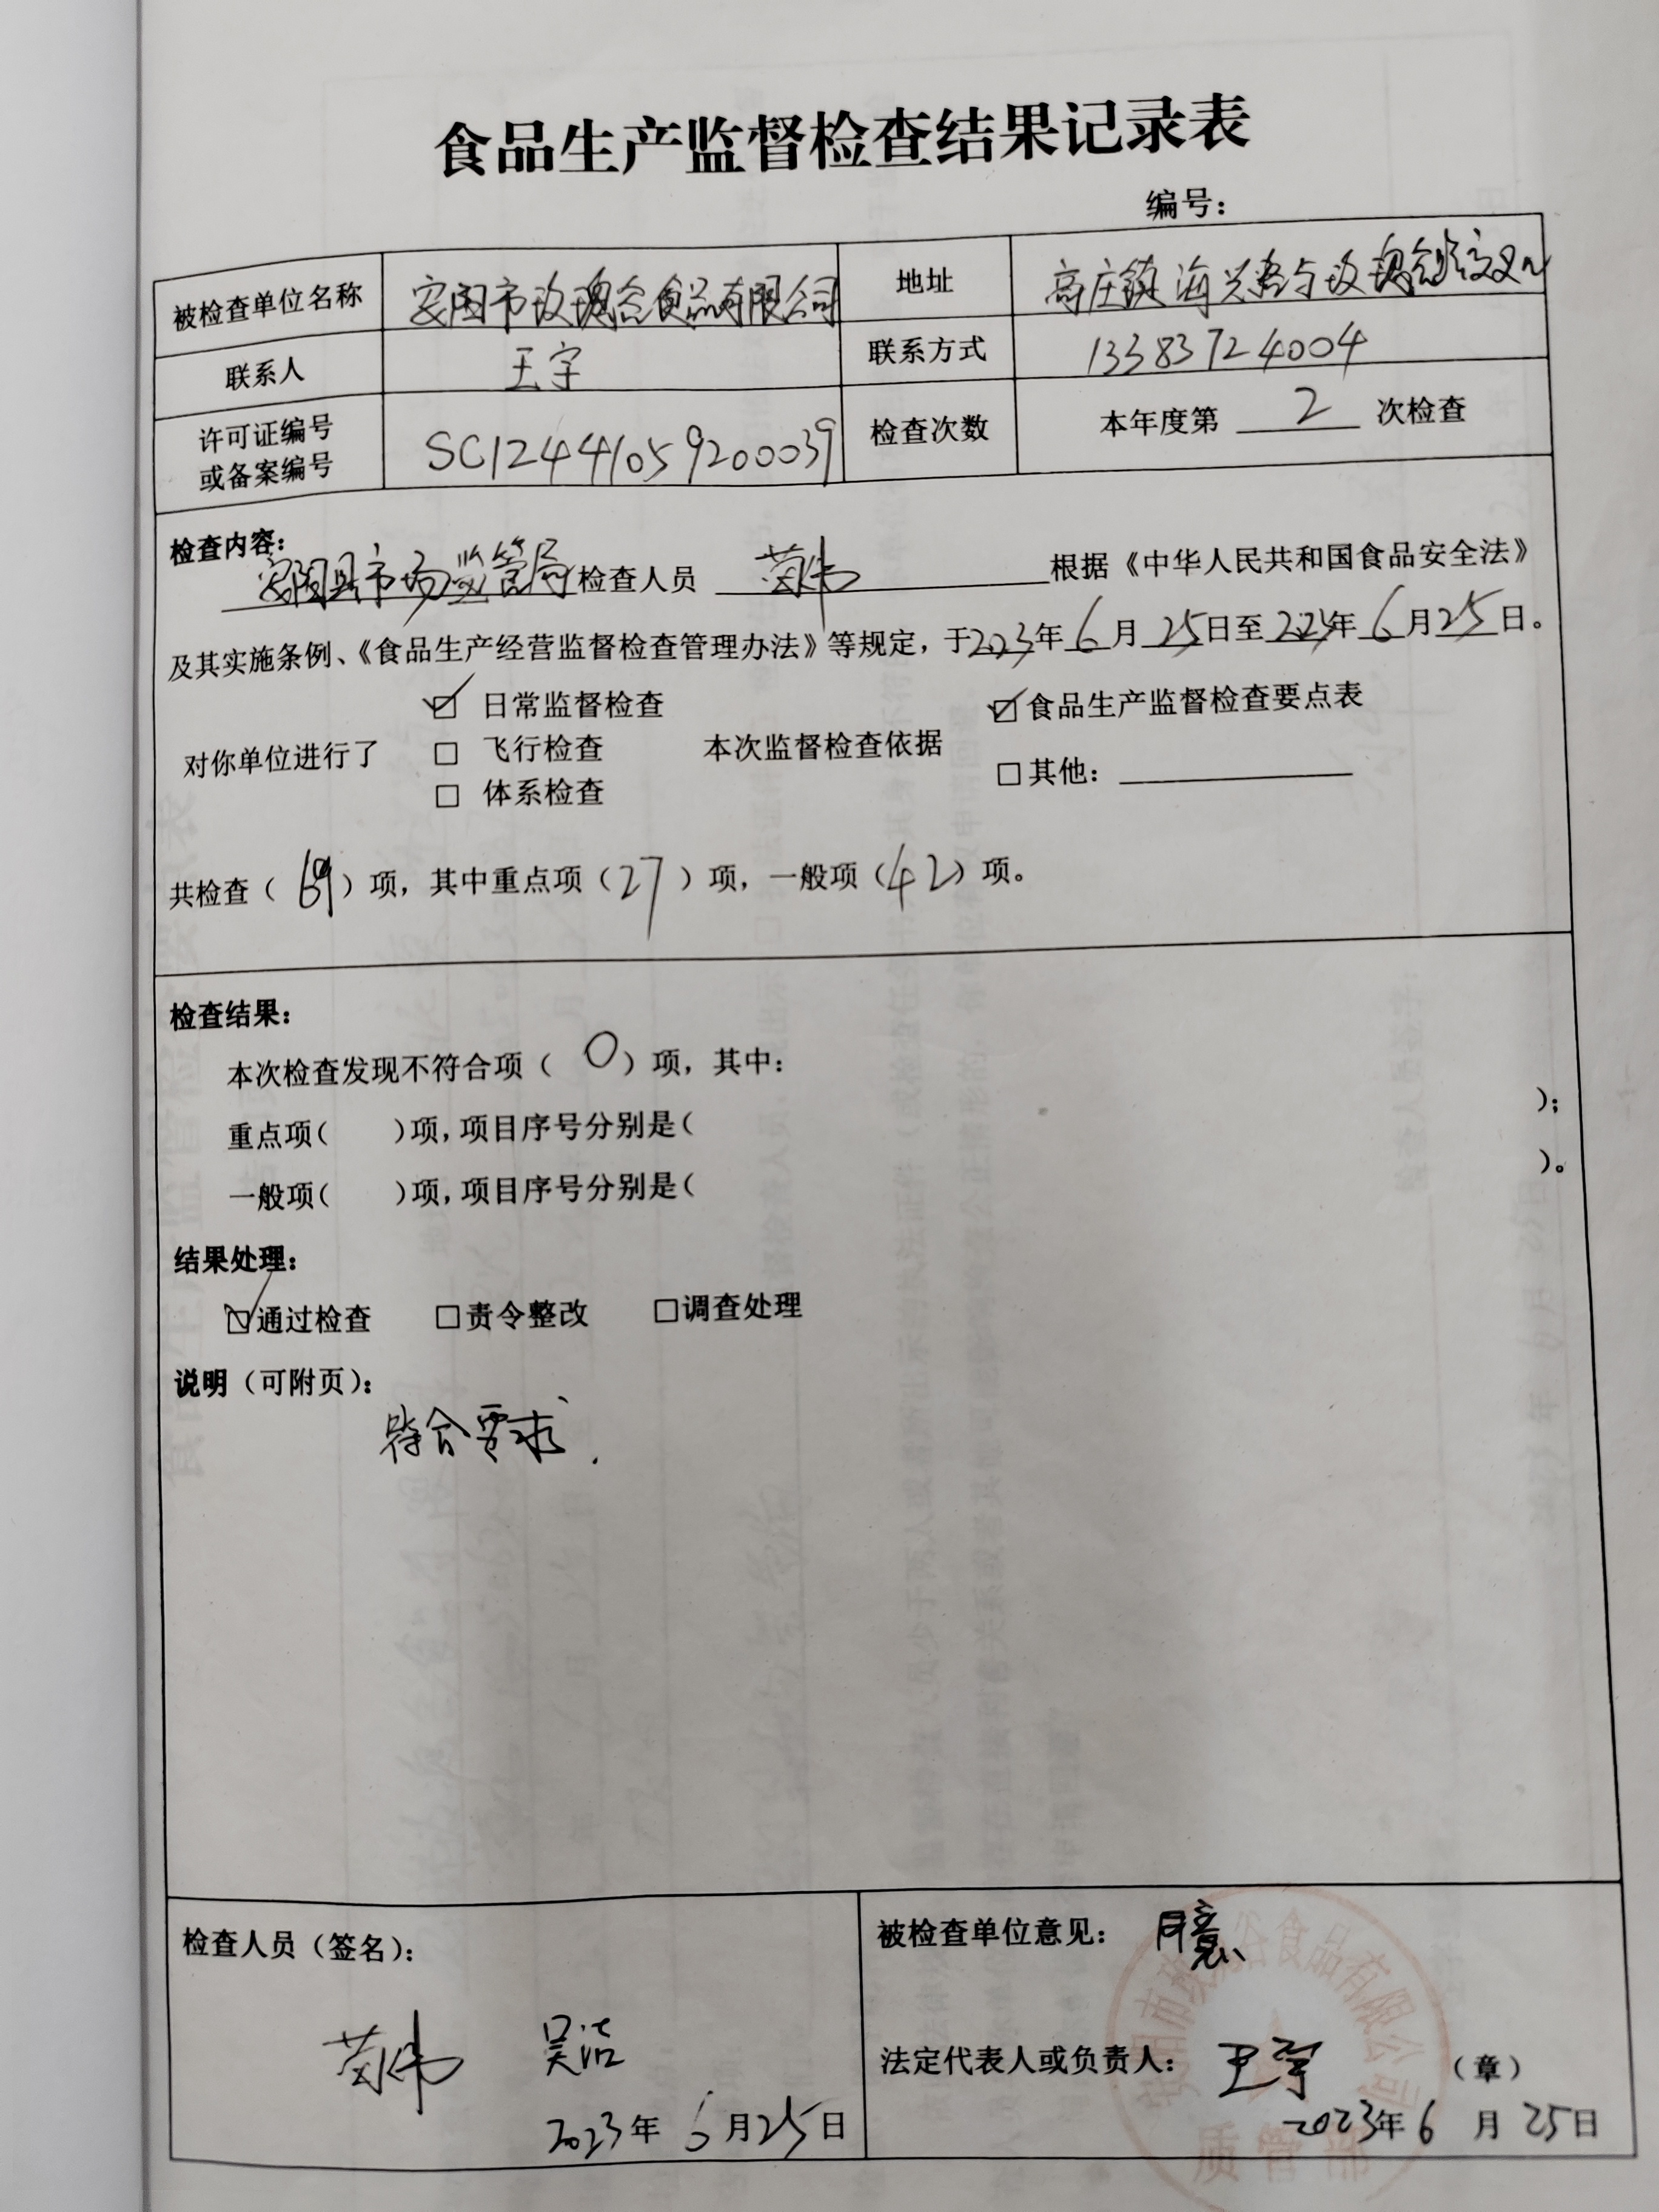 食品生产监督检查结果记录表
编号：
被检查单位名称 安阳市玫瑰谷食品有限公司 地址 高庄镇海兴路与玫瑰
联系人 王宇 联系方式 13383724004
许可证编号或备案编号 SC12441059200039 检查次数 本年度第 2 次检查
检查内容：
安阳县市场监管局检查人员 根据《中华人民共和国食品安全法》
及其实施条例、《食品生产经营监督检查管理办法》等规定，于2023年6月25日至2023年6月25日。
☑ 日常监督检查 ☑食品生产监督检查要点表
对你单位进行了 □ 飞行检查 本次监督检查依据
□ 体系检查 □其他：
共检查（69）项，其中重点项（27）项，一般项（42）项。
检查结果：
本次检查发现不符合项（0）项，其中：
重点项（ ）项，项目序号分别是（ ）；
一般项（ ）项，项目序号分别是（ ）。
结果处理：
☑通过检查 □责令整改 □调查处理
说明（可附页）：
符合要求.
检查人员（签名）： 被检查单位意见：同意
吴洁 法定代表人或负责人：王宇 （章）
2023年6月25日 2023年6月25日
安阳市玫瑰谷食品有限公司
质管部